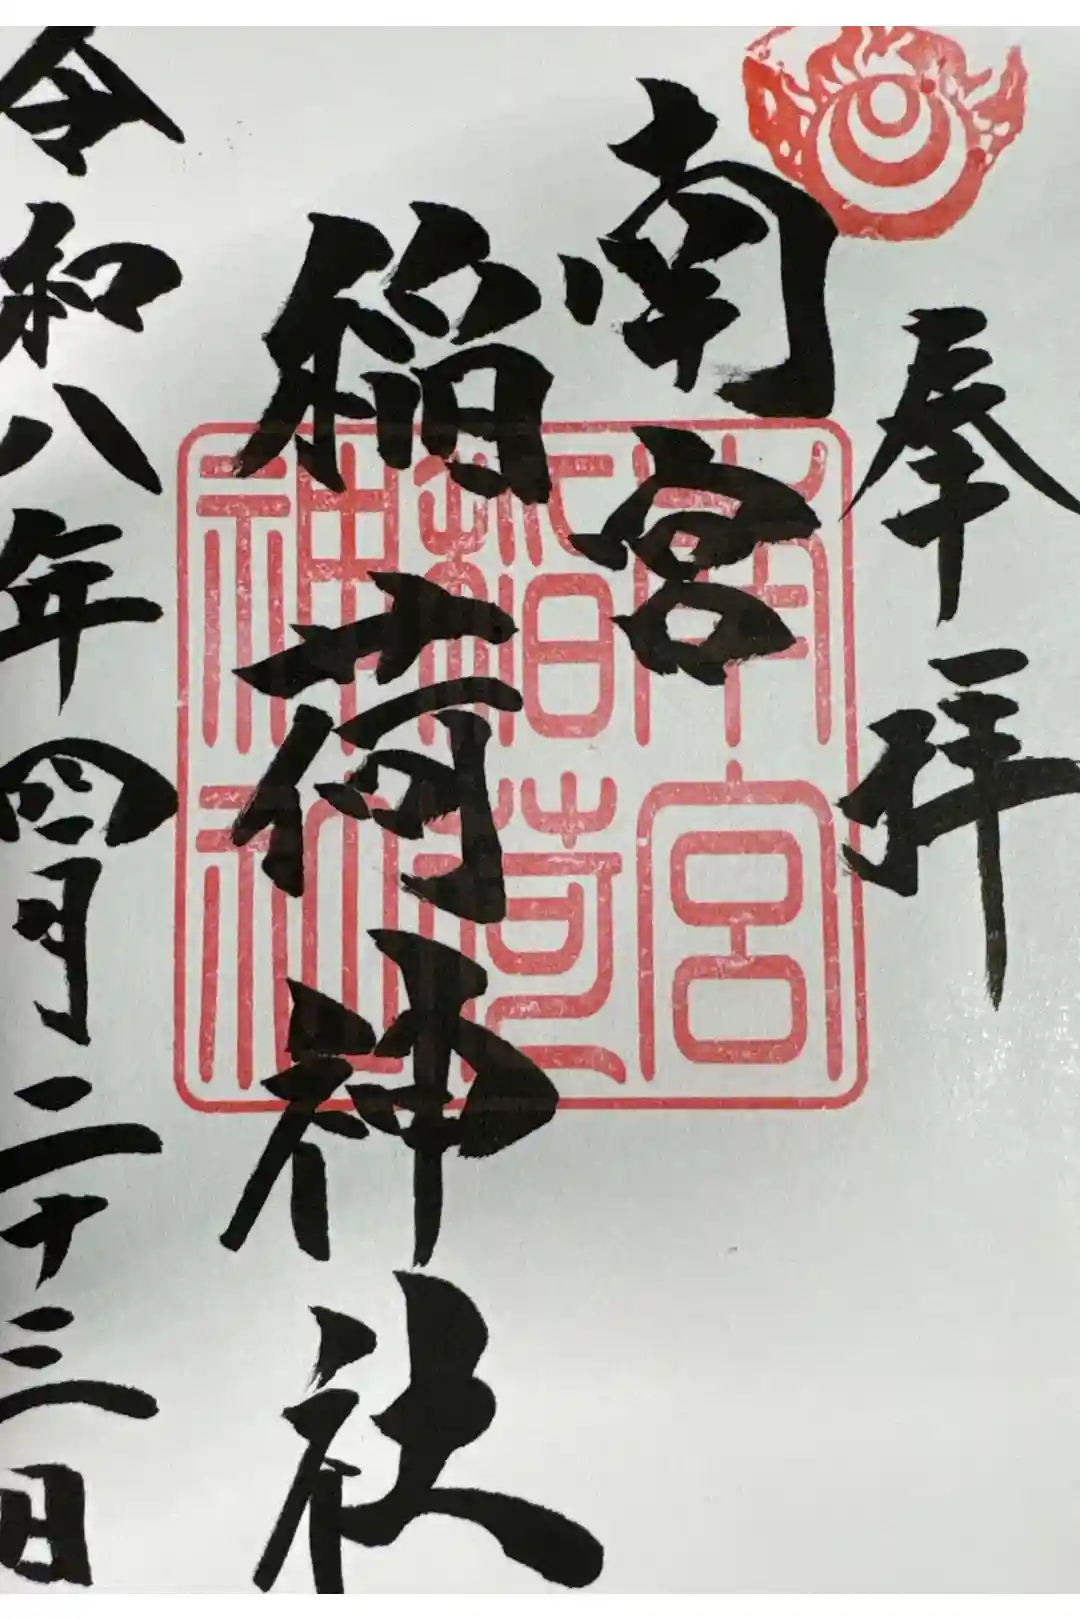 奉拝
南宮
稲荷神社
令和八年四月二十三日
南宮
稲荷
神社